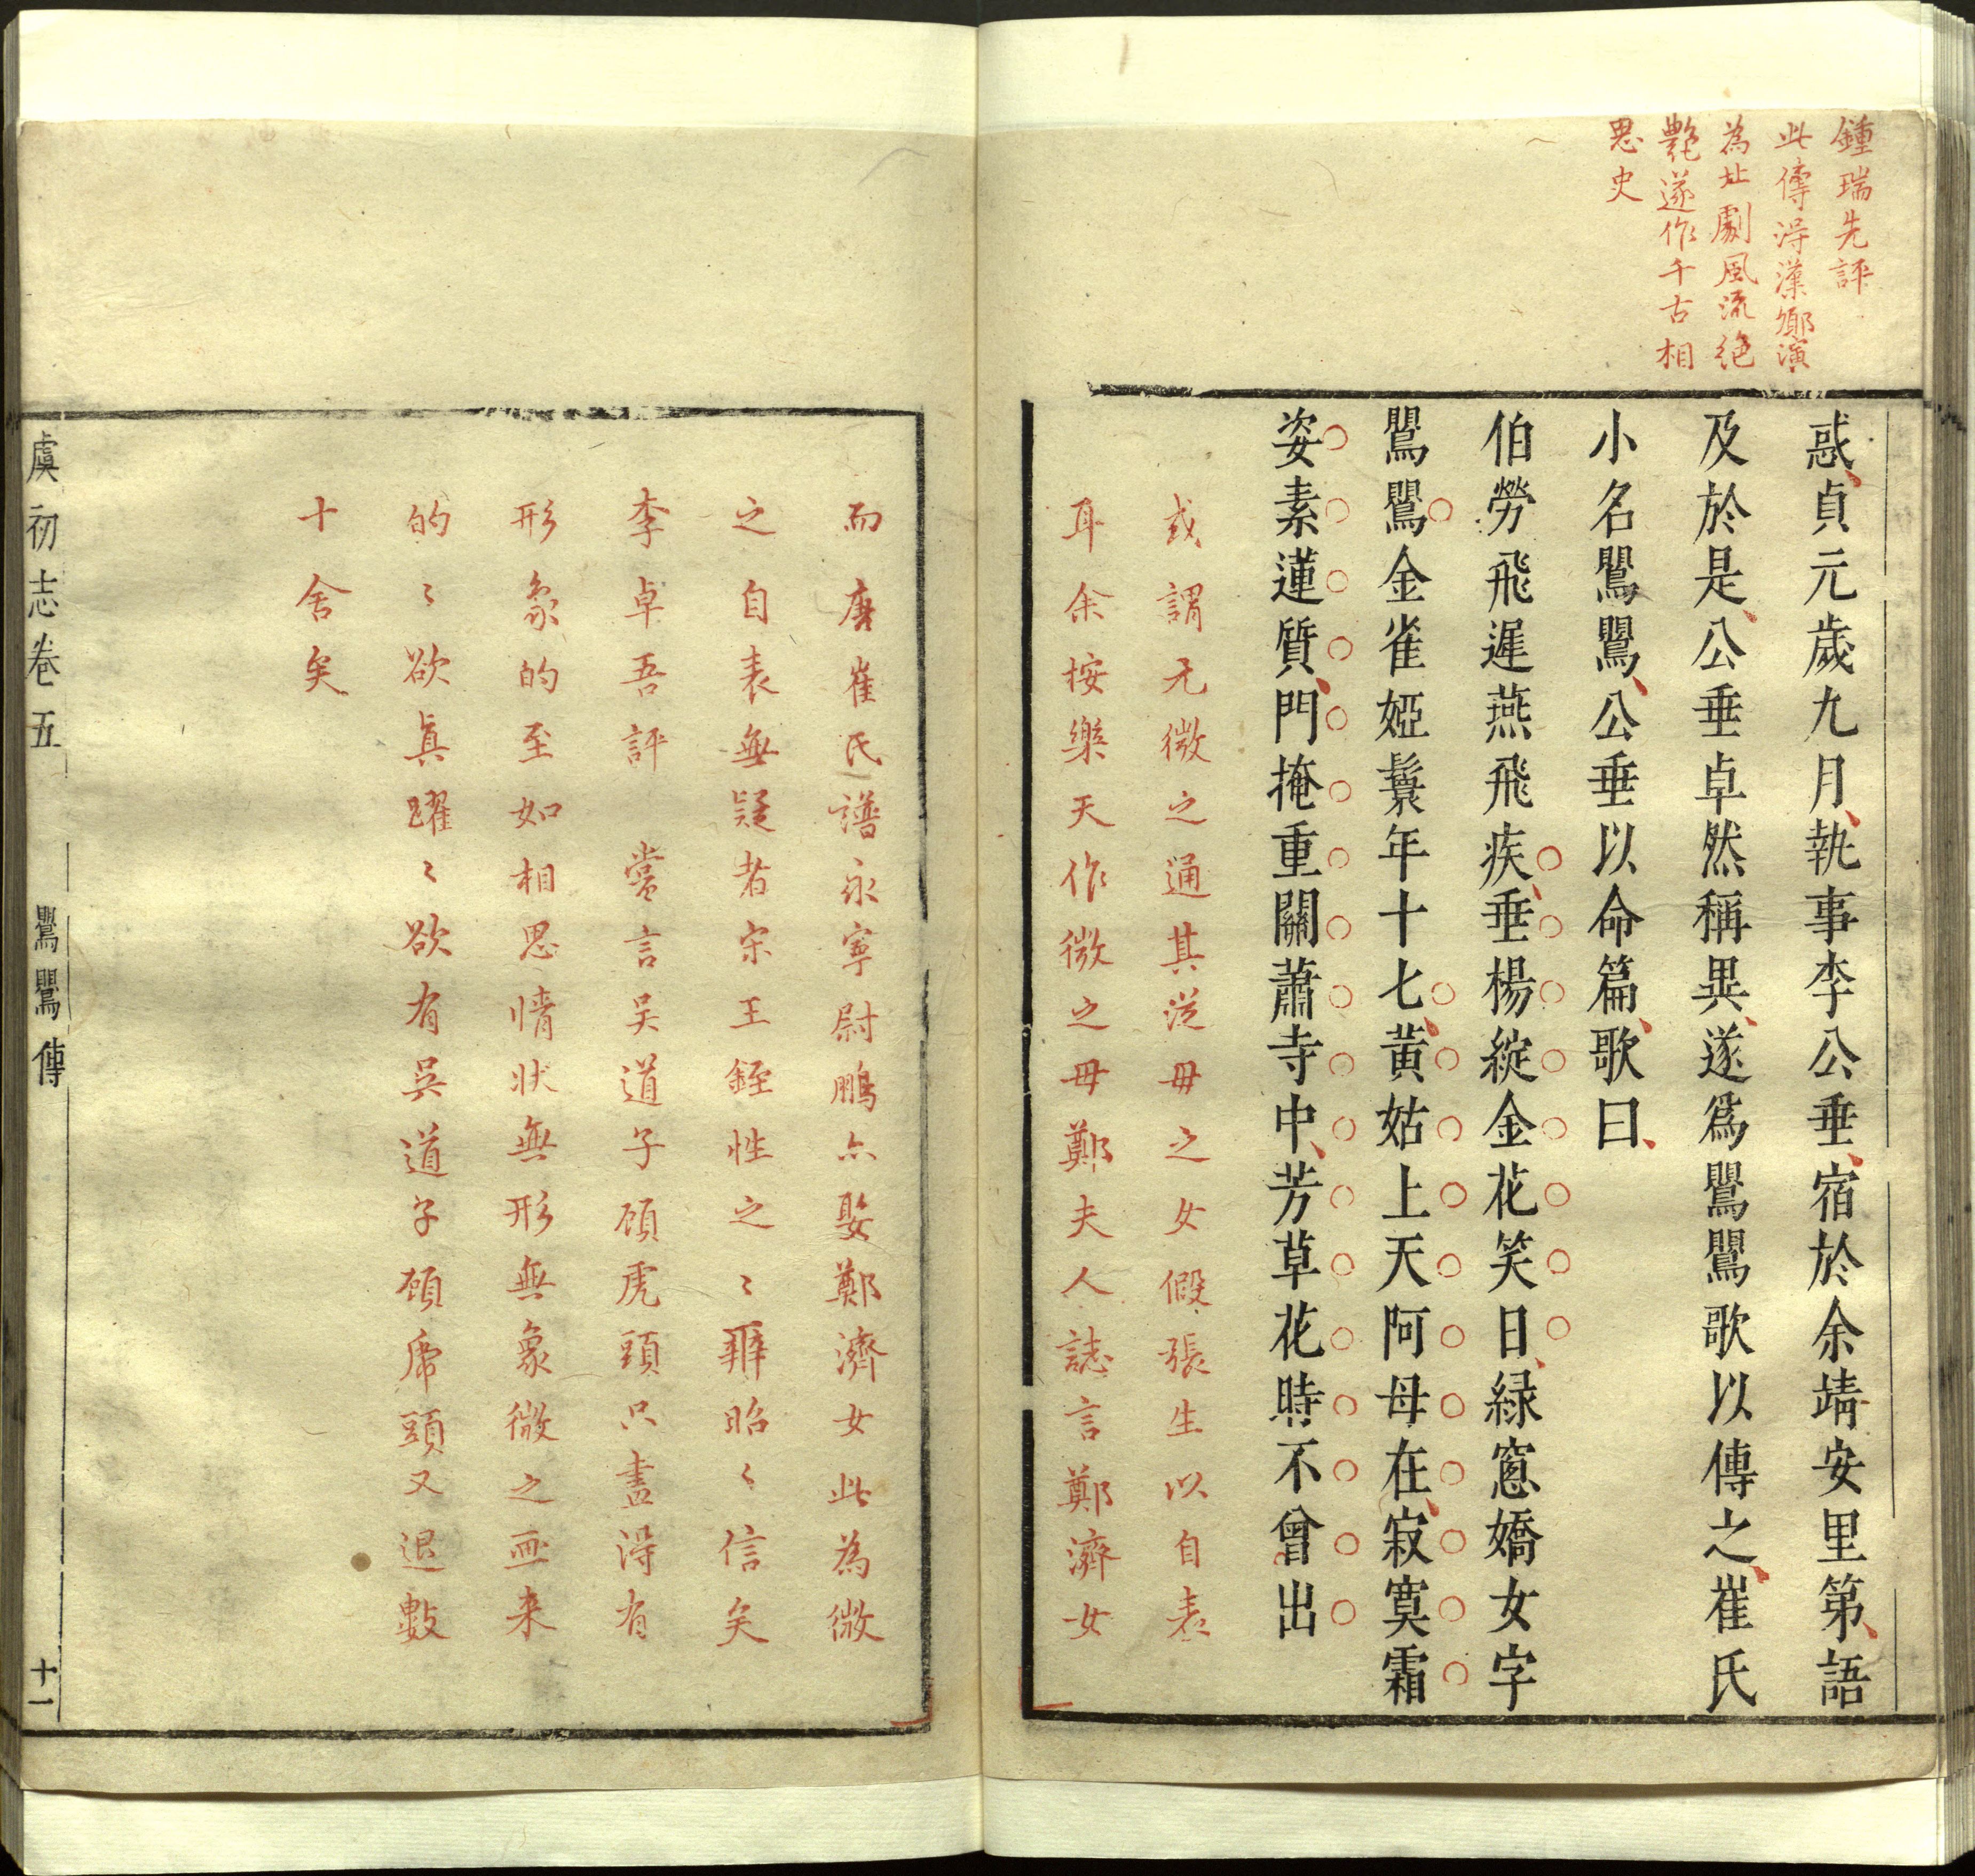 鍾瑞先評
此傳得漢卿演
為北劇風流絕
艷遂作千古相
思史
惑貞元歲九月執事李公垂宿於余靖安里第語
及於是公垂卓然稱異遂爲鸎鸎歌以傳之崔氏
小名鸎鸎公垂以命篇歌曰
伯勞飛遲燕飛疾垂楊綻金花笑日緑窓嬌女字
鸎鸎金雀婭鬟年十七黃姑上天阿母在寂寞霜
姿素蓮質門掩重關蕭寺中芳草花時不曾出
或謂元微之通其從母之女假張生以自表
耳余按樂天作微之母鄭夫人誌言鄭濟女
而唐崔氏譜永寧尉鵬亦娶鄭濟女此為微
之自表無疑者宋王銍性之〻辨昭〻信矣
李卓吾評 嘗言吳道子顧虎頭只畫得有
形象的至如相思情狀無形無象微之画来
的〻欲真躍〻欲有吳道子顧虎頭又退數
十舍矣
虞初志卷五
鸎鸎傳
十一